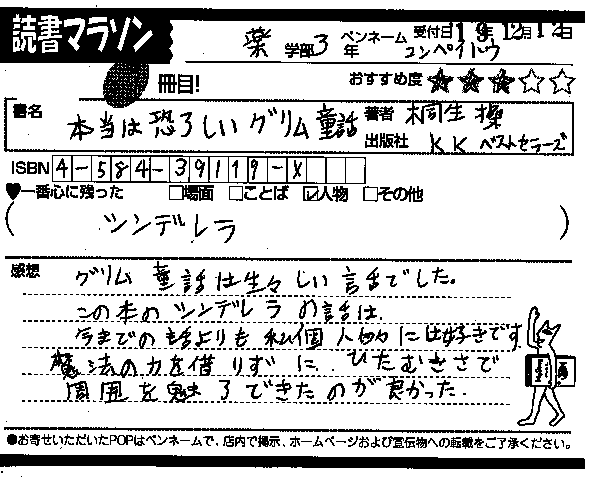 読書マラソン
薬 学部 3 年 ペンネーム コンペイトウ 受付日 19年12月12日
冊目! おすすめ度 ★★★☆☆
書名 本当は恐ろしいグリム童話 著者 桐生 操
出版社 KK ベストセラーズ
ISBN 4-584-39119-X
♥一番心に残った □場面 □ことば ☑人物 □その他
( シンデレラ )
感想 グリム童話は生々しい言話でした。
この本のシンデレラの話は、
今までの話よりも私個人的には好きです
魔法の力を借りずに、ひたむきさで
周囲を魅了できたのが良かった。
●お寄せいただいたPOPはペンネームで、店内で掲示、ホームページおよび宣伝物への転載をご了承ください。